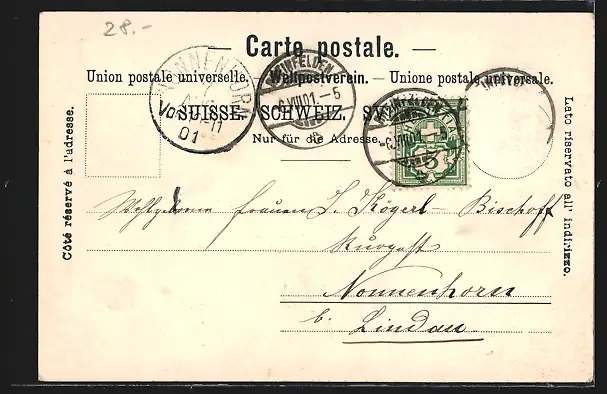 28.-
Carte postale.
Union postale universelle. — Weltpostverein. — Unione postale universale.
SUISSE. SCHWEIZ.
Nur für die Adresse.
Côté réservé à l'adresse.
Lato riservato all' indirizzo.
NONNENHORN
7
Vorm.
01
RHEINFELDEN
-6.VIII.01.-5
RHEINFELDEN
-6.VIII.01
5
Wohlgeborne Frauen J. Kögerl-Bischoff
Kurgast
Nonnenhorn
b. Lindau